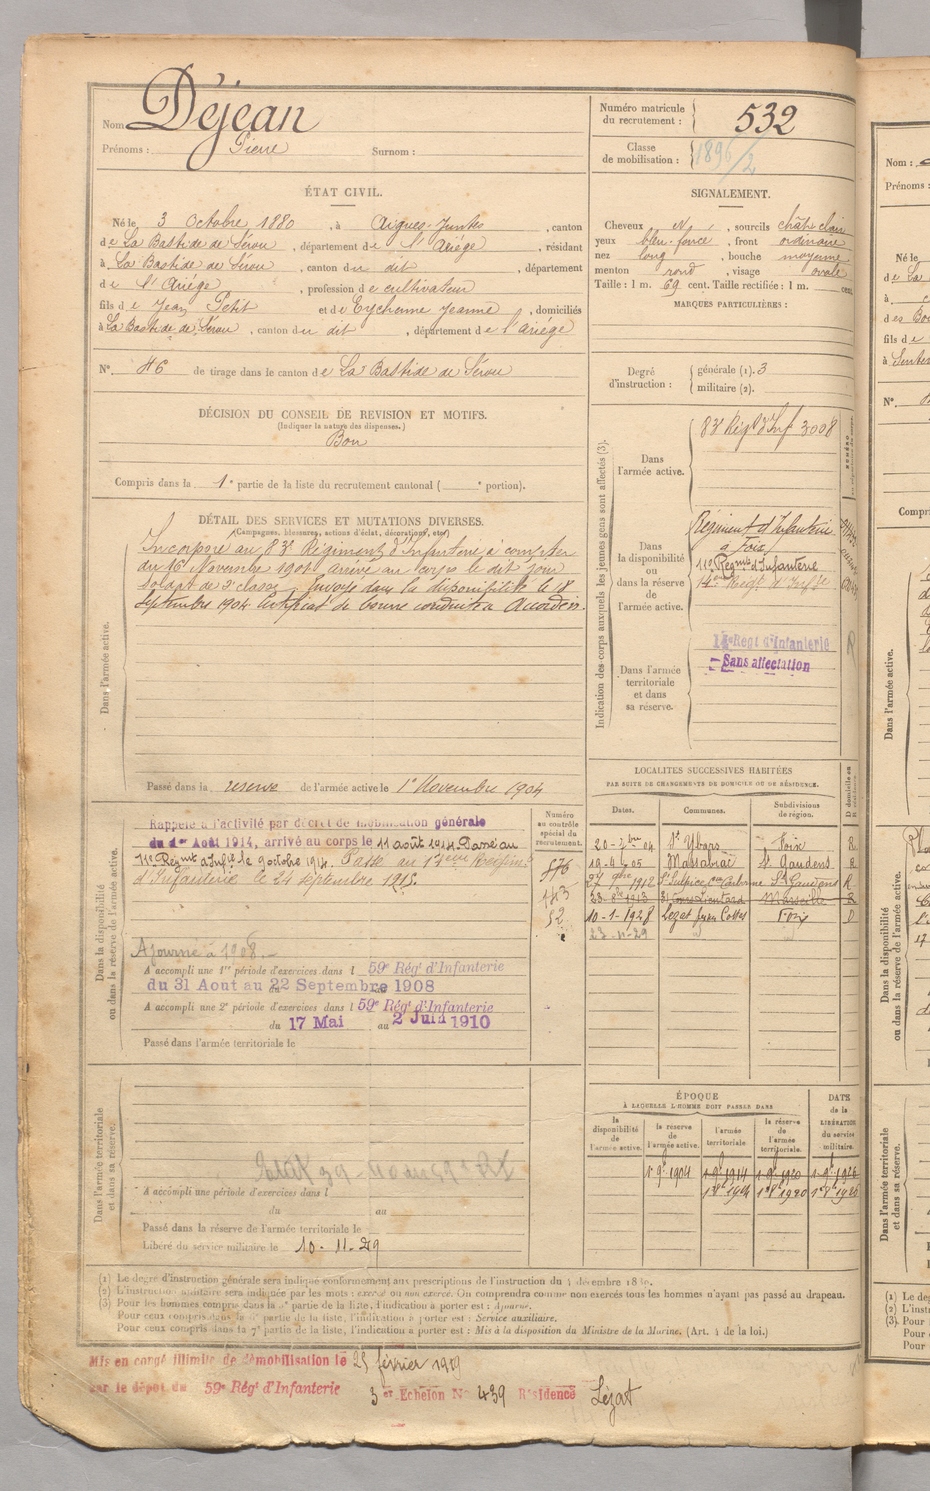 Nom Déjean
Prénoms : Pierre Surnom :
Numéro matricule du recrutement : 532
Classe de mobilisation : 1896/2
ÉTAT CIVIL.
Né le 3 Octobre 1880, à Aigues-Juntes, canton
de La Bastide de Sérou, département de l'Ariège, résidant
à La Bastide de Sérou, canton du dit, département
de l'Ariège, profession de cultivateur
fils de Jean Petit et de Eychenne Jeanne, domiciliés
à La Bastide de Sérou, canton du dit, département de l'Ariège
N° 46 de tirage dans le canton de La Bastide de Sérou
DÉCISION DU CONSEIL DE REVISION ET MOTIFS.
(Indiquer la nature des dispenses.)
Bon
Compris dans la 1e partie de la liste du recrutement cantonal ( e portion).
SIGNALEMENT.
Cheveux N, sourcils chât. clair
yeux bleu foncé, front ordinaire
nez long, bouche moyenne
menton rond, visage ovale
Taille : 1 m. 69 cent. Taille rectifiée : 1 m. cent.
MARQUES PARTICULIÈRES :
Degré d'instruction : générale (1). 3
militaire (2).
DÉTAIL DES SERVICES ET MUTATIONS DIVERSES.
(Campagnes, blessures, actions d'éclat, décorations, etc.)
Dans l'armée active.
Incorporé au 83e Régiment d'Infanterie à compter
du 16 Novembre 1901, arrivé au corps le dit jour
soldat de 2e classe. Envoyé dans la disponibilité le 18
Septembre 1904 Certificat de bonne conduite Accordé.
Passé dans la réserve de l'armée active le 1er Novembre 1904
Indication des corps auxquels les jeunes gens sont affectés (3).
Dans l'armée active.
83e Régt d'Inf 3008
Dans la disponibilité ou dans la réserve de l'armée active.
Régiment d'Infanterie
à Foix
11e Régmt d'Infanterie
14e Régt d'Inf
Dans l'armée territoriale et dans sa réserve.
14e Régt d'Infanterie
Sans affectation
Dans la disponibilité ou dans la réserve de l'armée active.
Numéro au contrôle spécial du recrutement.
Rappelé à l'activité par décret de mobilisation générale
du 1er Août 1914, arrivé au corps le 11 août 1914. Passé au
11e Régmt d'Infie le 9 octobre 1914. Passé au 14ème Régiment
d'Infanterie le 24 septembre 1915.
576
143
52
Ajourné à 1908.
A accompli une 1re période d'exercices dans l 59e Régt d'Infanterie
du 31 Aout au 22 Septembre 1908
A accompli une 2e période d'exercices dans l 59e Régt d'Infanterie
du 17 Mai au 2 Juin 1910
Passé dans l'armée territoriale le
LOCALITÉS SUCCESSIVES HABITÉES
PAR SUITE DE CHANGEMENTS DE DOMICILE OU DE RÉSIDENCE.
Dates. Communes. Subdivisions de région. D domicile ou R résidence.
20-7bre-04 St Ybars Foix R
19-4-05 Massabrac St Gaudens R
27 9bre 1912 St Sulpice, con Carbonne St Gaudens R
23-8bre 1913 Marseille R
10-1-1928 Lézat Foix D
23-11-29
ÉPOQUE
À LAQUELLE L'HOMME DOIT PASSER DANS
DATE de la LIBÉRATION DU service militaire.
la disponibilité de l'armée active. la réserve de l'armée active. l'armée territoriale. la réserve de l'armée territoriale.
1r 9e 1904 1r 9e 1914 1r 9e 1920 1r 9e 1926
1r 8e 1914 1r 8e 1920 1r 8e 1926
Dans l'armée territoriale et dans sa réserve.
A accompli une période d'exercices dans l
du au
Passé dans la réserve de l'armée territoriale le
Libéré du service militaire le 10-11-29
(1) Le degré d'instruction générale sera indiqué conformément aux prescriptions de l'instruction du 4 décembre 1889.
(2) L'instruction militaire sera indiquée par les mots : exercé ou non exercé. On comprendra comme non exercés tous les hommes n'ayant pas passé au drapeau.
(3) Pour les hommes compris dans la 5e partie de la liste, l'indication à porter est : Ajourné.
Pour ceux compris dans la 6e partie de la liste, l'indication à porter est : Service auxiliaire.
Pour ceux compris dans la 7e partie de la liste, l'indication à porter est : Mis à la disposition du Ministre de la Marine. (Art. 4 de la loi.)
Mis en congé illimité de démobilisation le 25 février 1919
par le dépôt du 59e Régt d'Infanterie 3er Échelon N° 439 Résidence Lézat